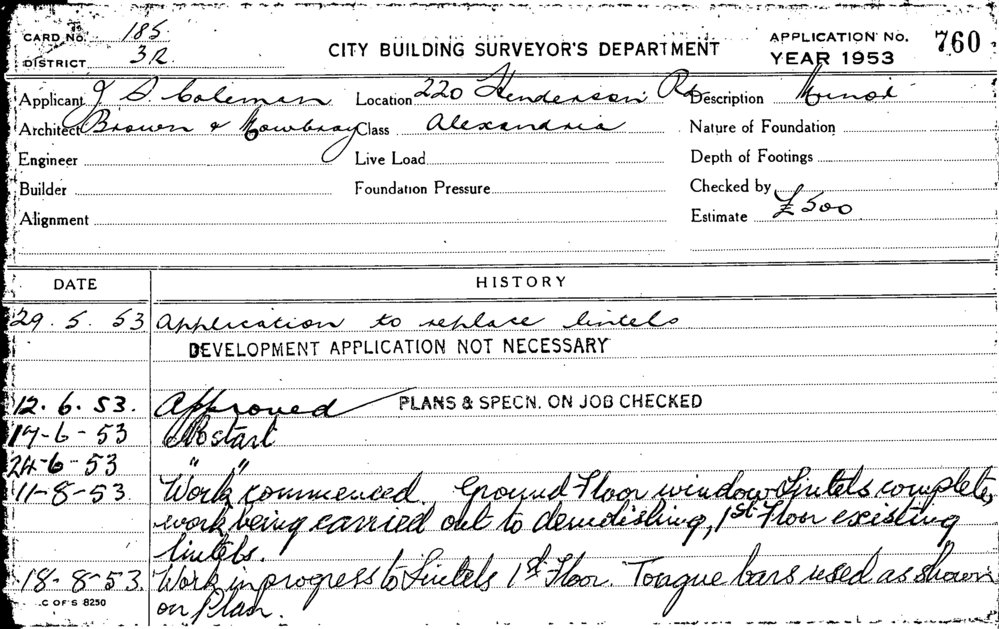 CARD No. 185
DISTRICT 3R
CITY BUILDING SURVEYOR'S DEPARTMENT
APPLICATION No. 760
YEAR 1953
Applicant J. S. Coleman Location 220 Henderson Rd Description Minor
Architect Brown & Mowbray Class Alexandria Nature of Foundation
Engineer Live Load Depth of Footings
Builder Foundation Pressure Checked by
Alignment Estimate £500
DATE HISTORY
29. 5. 53 Application to replace lintels
DEVELOPMENT APPLICATION NOT NECESSARY
12. 6. 53. Approved PLANS & SPECN. ON JOB CHECKED
17-6-53 No start
24-6-53 " "
11-8-53. Work commenced. Ground Floor window Lintels complete,
work being carried out to demolishing, 1st Floor existing
lintels.
18-8-53. Work in progress to Lintels 1st Floor. Tongue bars used as shown
on Plan.
C OF S 8250